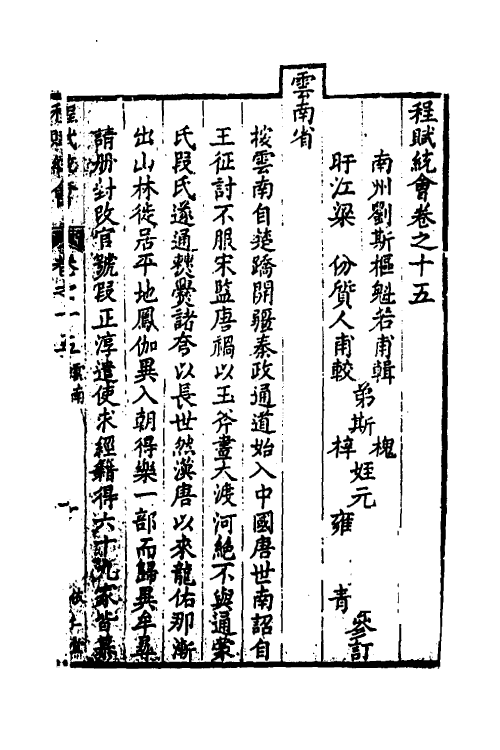 程賦統會卷之十五
南州劉斯樞魁若甫輯 弟斯槐 姪元 青
盱江梁 份質人甫較 梓 雍 參訂
雲南省
按雲南自莊蹻開疆秦政通道始入中國唐世南詔自
王征討不服宋監唐禍以玉斧畫大渡河絕不與通蒙
氏段氏遂通僰爨諸夸以長世然漢唐以來龍佑那漸
出山林徙居平地鳳伽異入朝得樂一部而歸異牟尋
請册封改官號段正淳遣使求經籍得六十九家皆
卷之十五 雲南